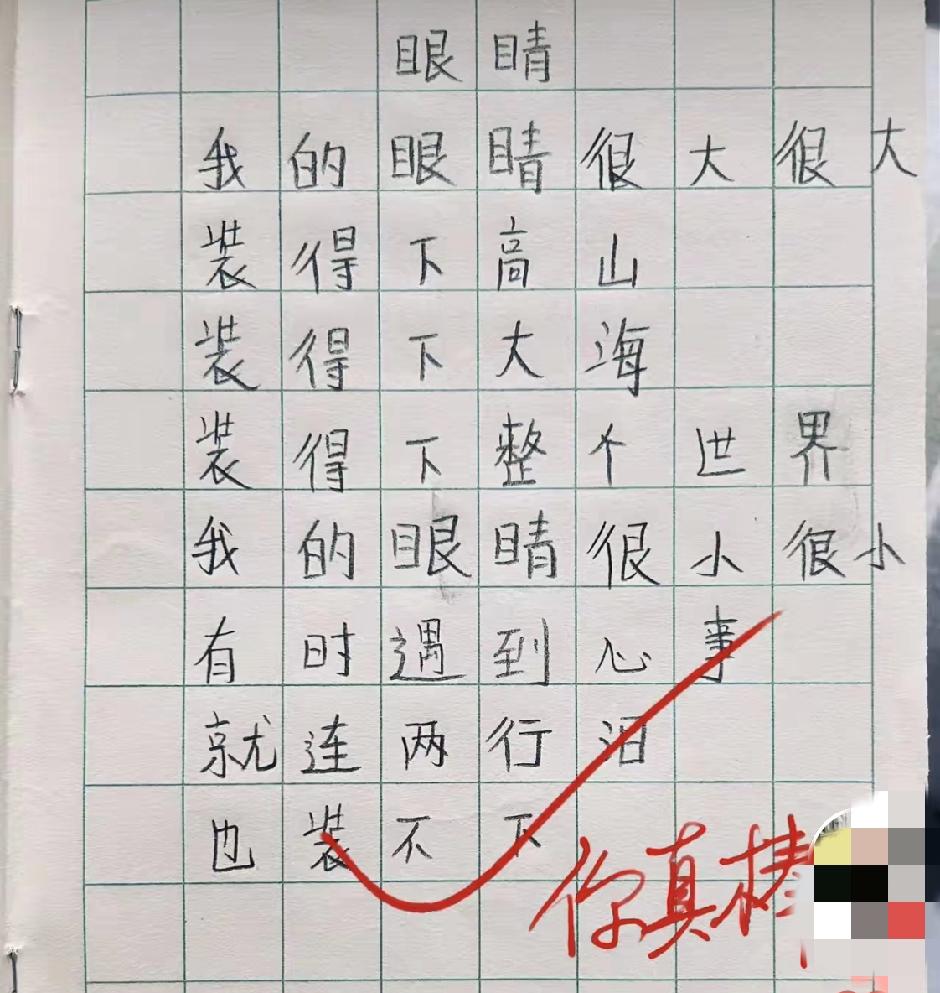 眼睛
我的眼睛很大很大
装得下高山
装得下大海
装得下整个世界
我的眼睛很小很小
有时遇到心事
就连两行泪
也装不下
你真棒